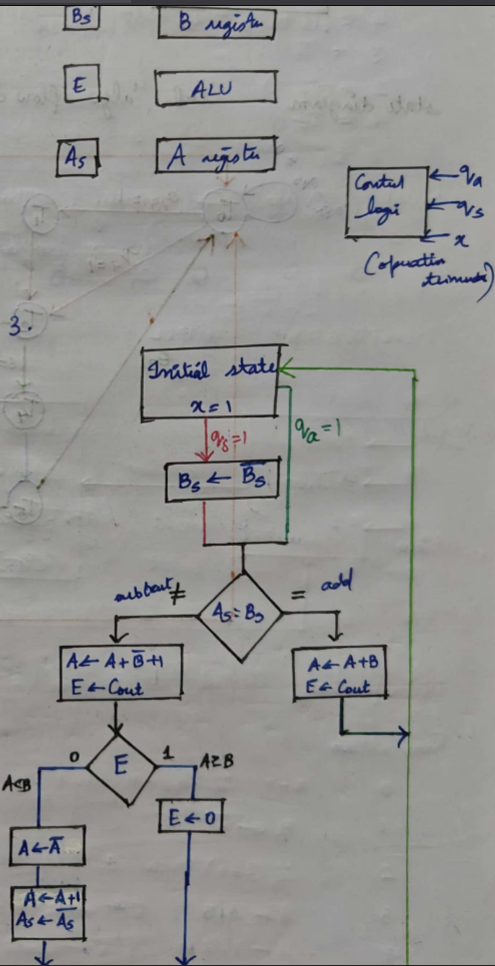 Bs
B register
E
ALU
As
A register
Control
logic
qa
qs
x
3.
Initial state
x = 1
qs = 1
qa = 1
Bs ← B̅s̅
subtract ≠
As = Bs
= add
A ← A + B̅ + 1
E ← Cout
A ← A + B
E ← Cout
0
E
1
A≥B
A<B
E ← 0
A ← A̅
A ← A+1
As ← A̅s̅